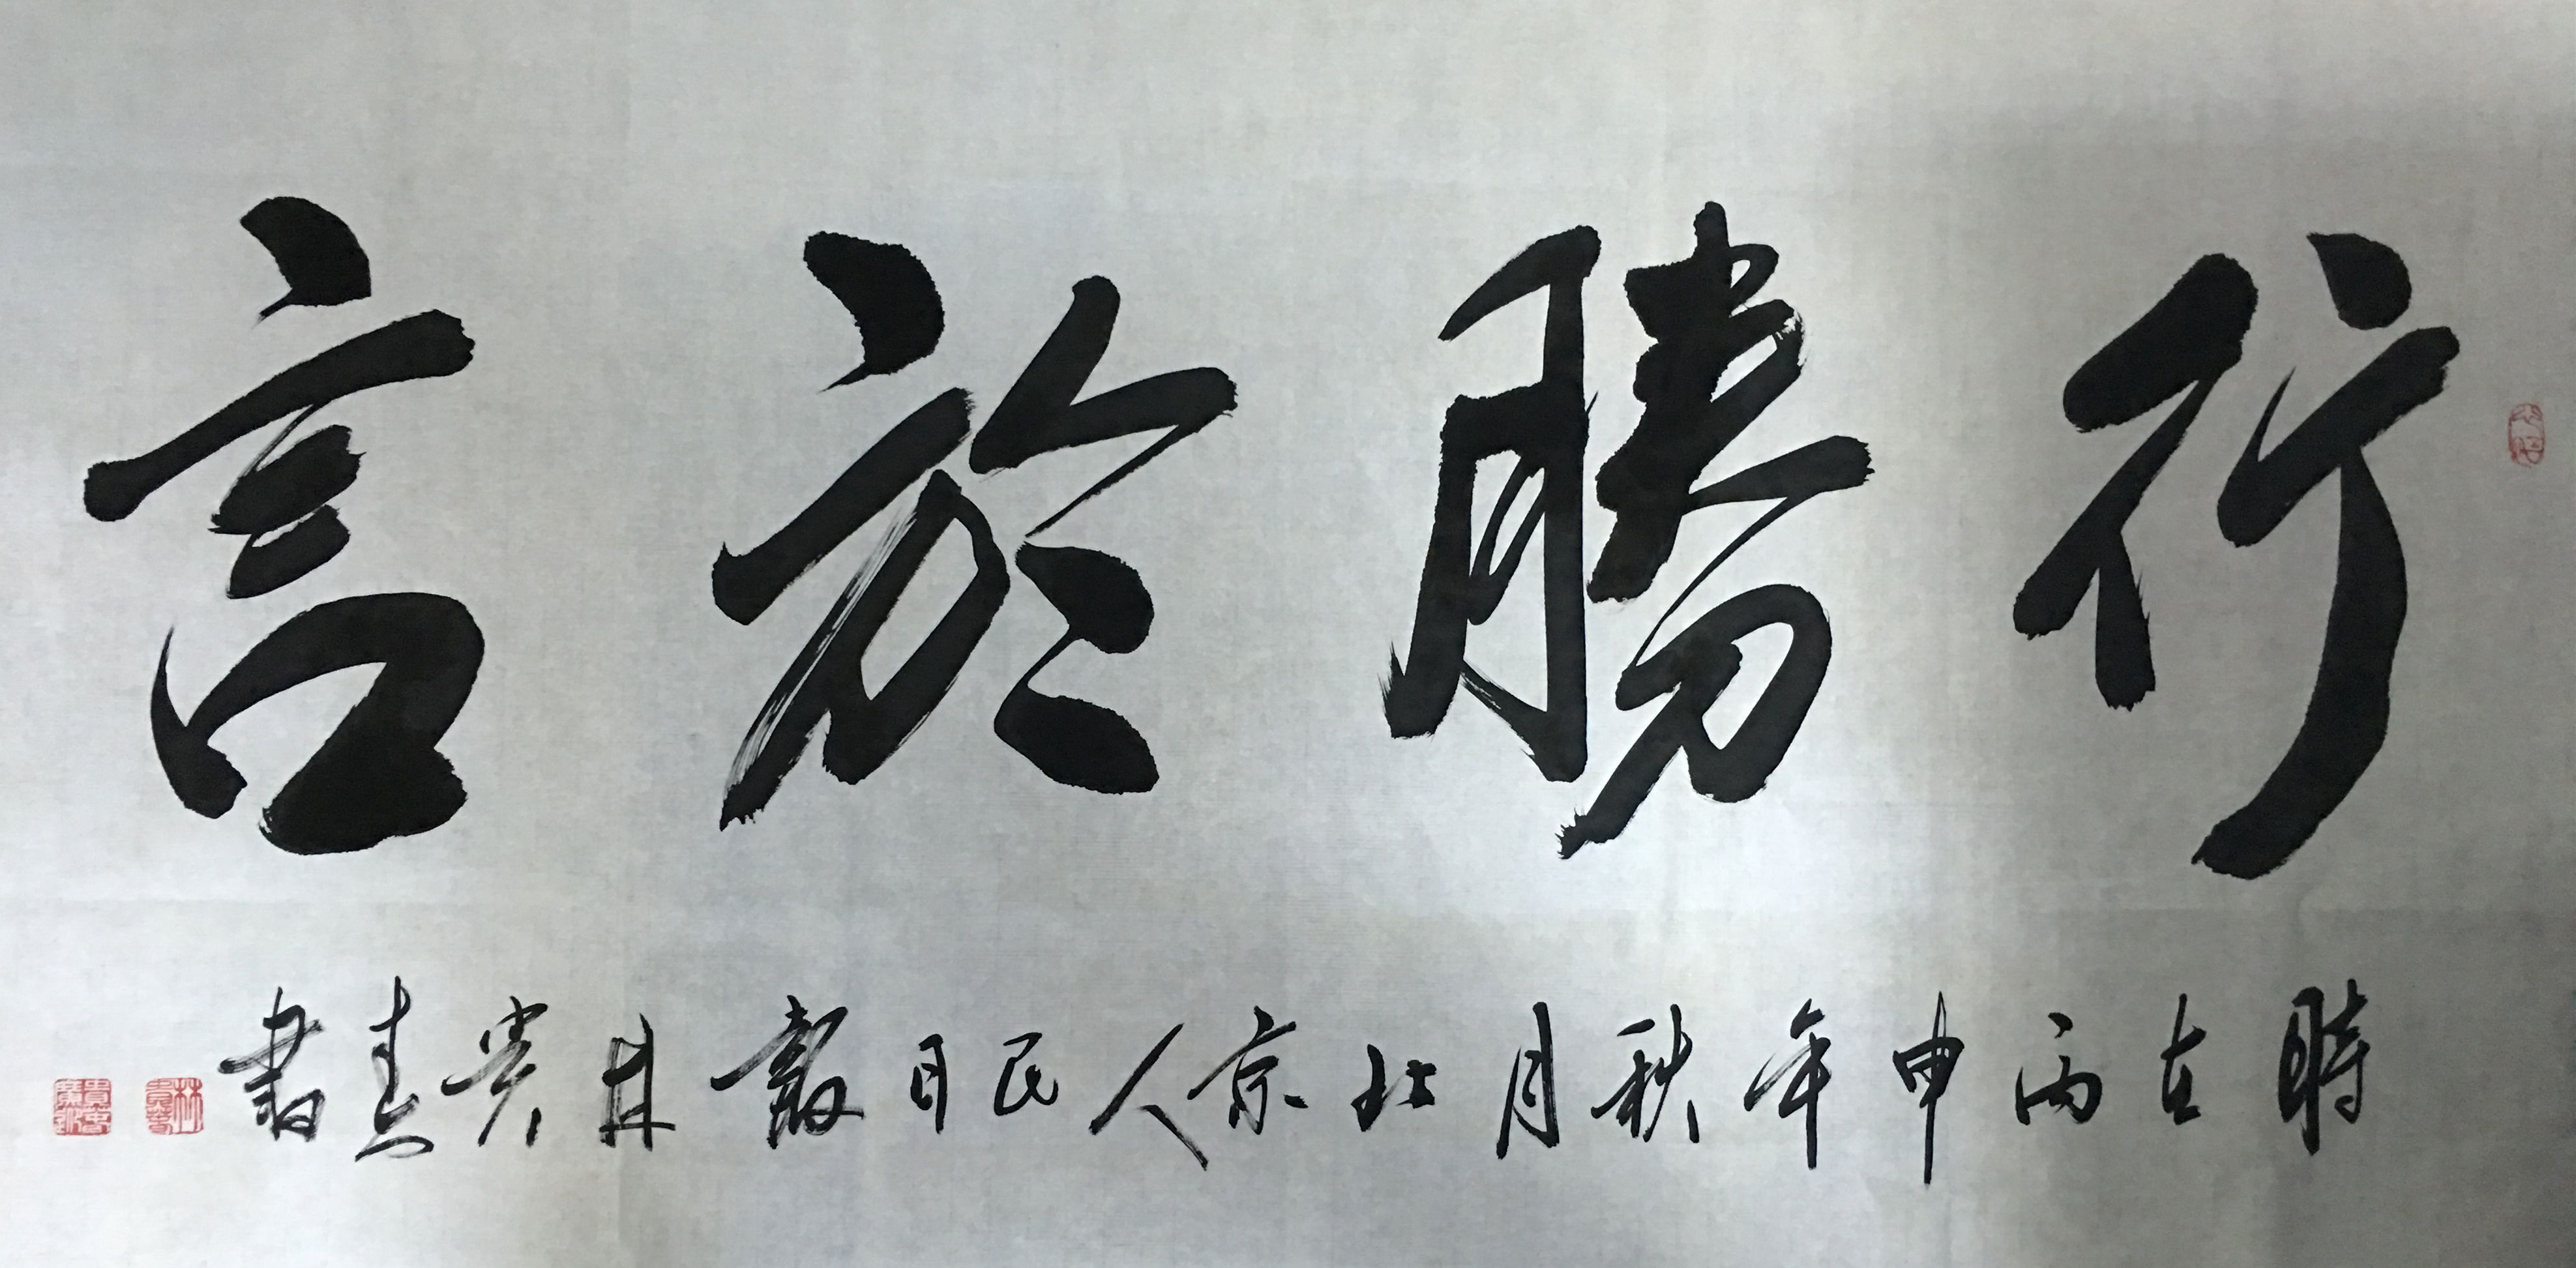 行勝於言
時在丙申年秋月北京人民日報林貴春書